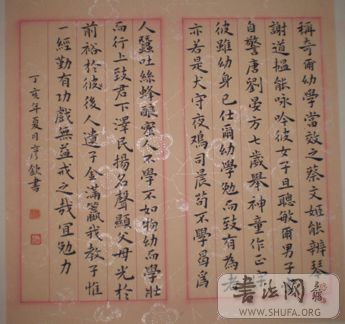 稱奇爾幼學當效之蔡文姬能辨琴
謝道韞能咏吟彼女子且聰敏爾男子
自警唐劉晏方七歲舉神童作正字
彼雖幼身已仕爾幼學勉而致有為者
亦若是犬守夜鷄司晨苟不學曷為
人蠶吐絲蜂釀蜜人不學不如物幼而學壯
而行上致君下澤民揚名聲顯父母光於
前裕於後人遺子金滿籯我教子惟
一經勤有功戲無益戒之哉宜勉力
丁亥年夏月彥欽書
书法网
www.SHUFA.com